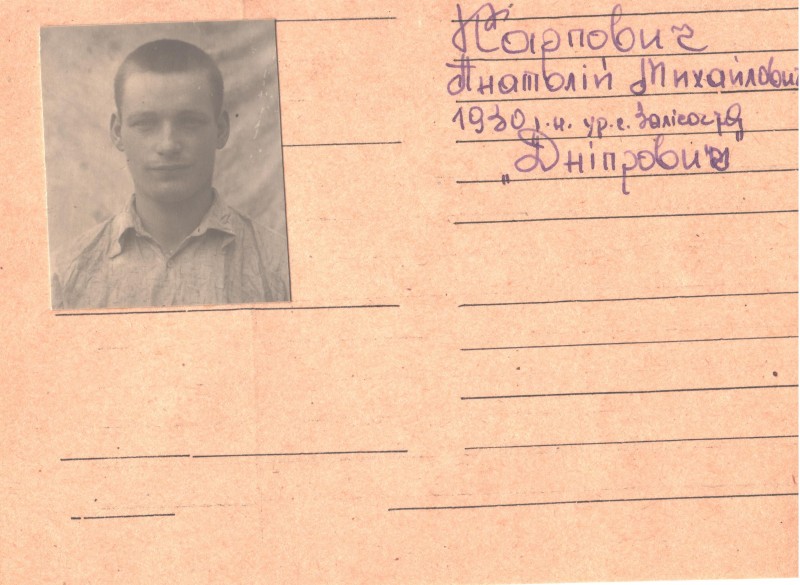 Карпович
Анатолій Михайлович
1930 р.н. ур. с. Залісся
"Дніпрович"